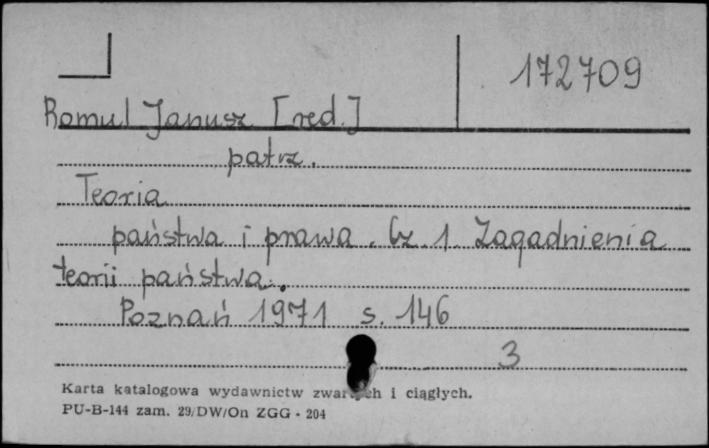 172709
Romul Janusz [red.]
patrz.
Teoria
państwa i prawa. Cz 1. Zagadnienia
teorii państwa.
Poznań 1971 s. 146
3
Karta katalogowa wydawnictw zwartych i ciągłych.
PU-B-144 zam. 29/DW/On ZGG - 204